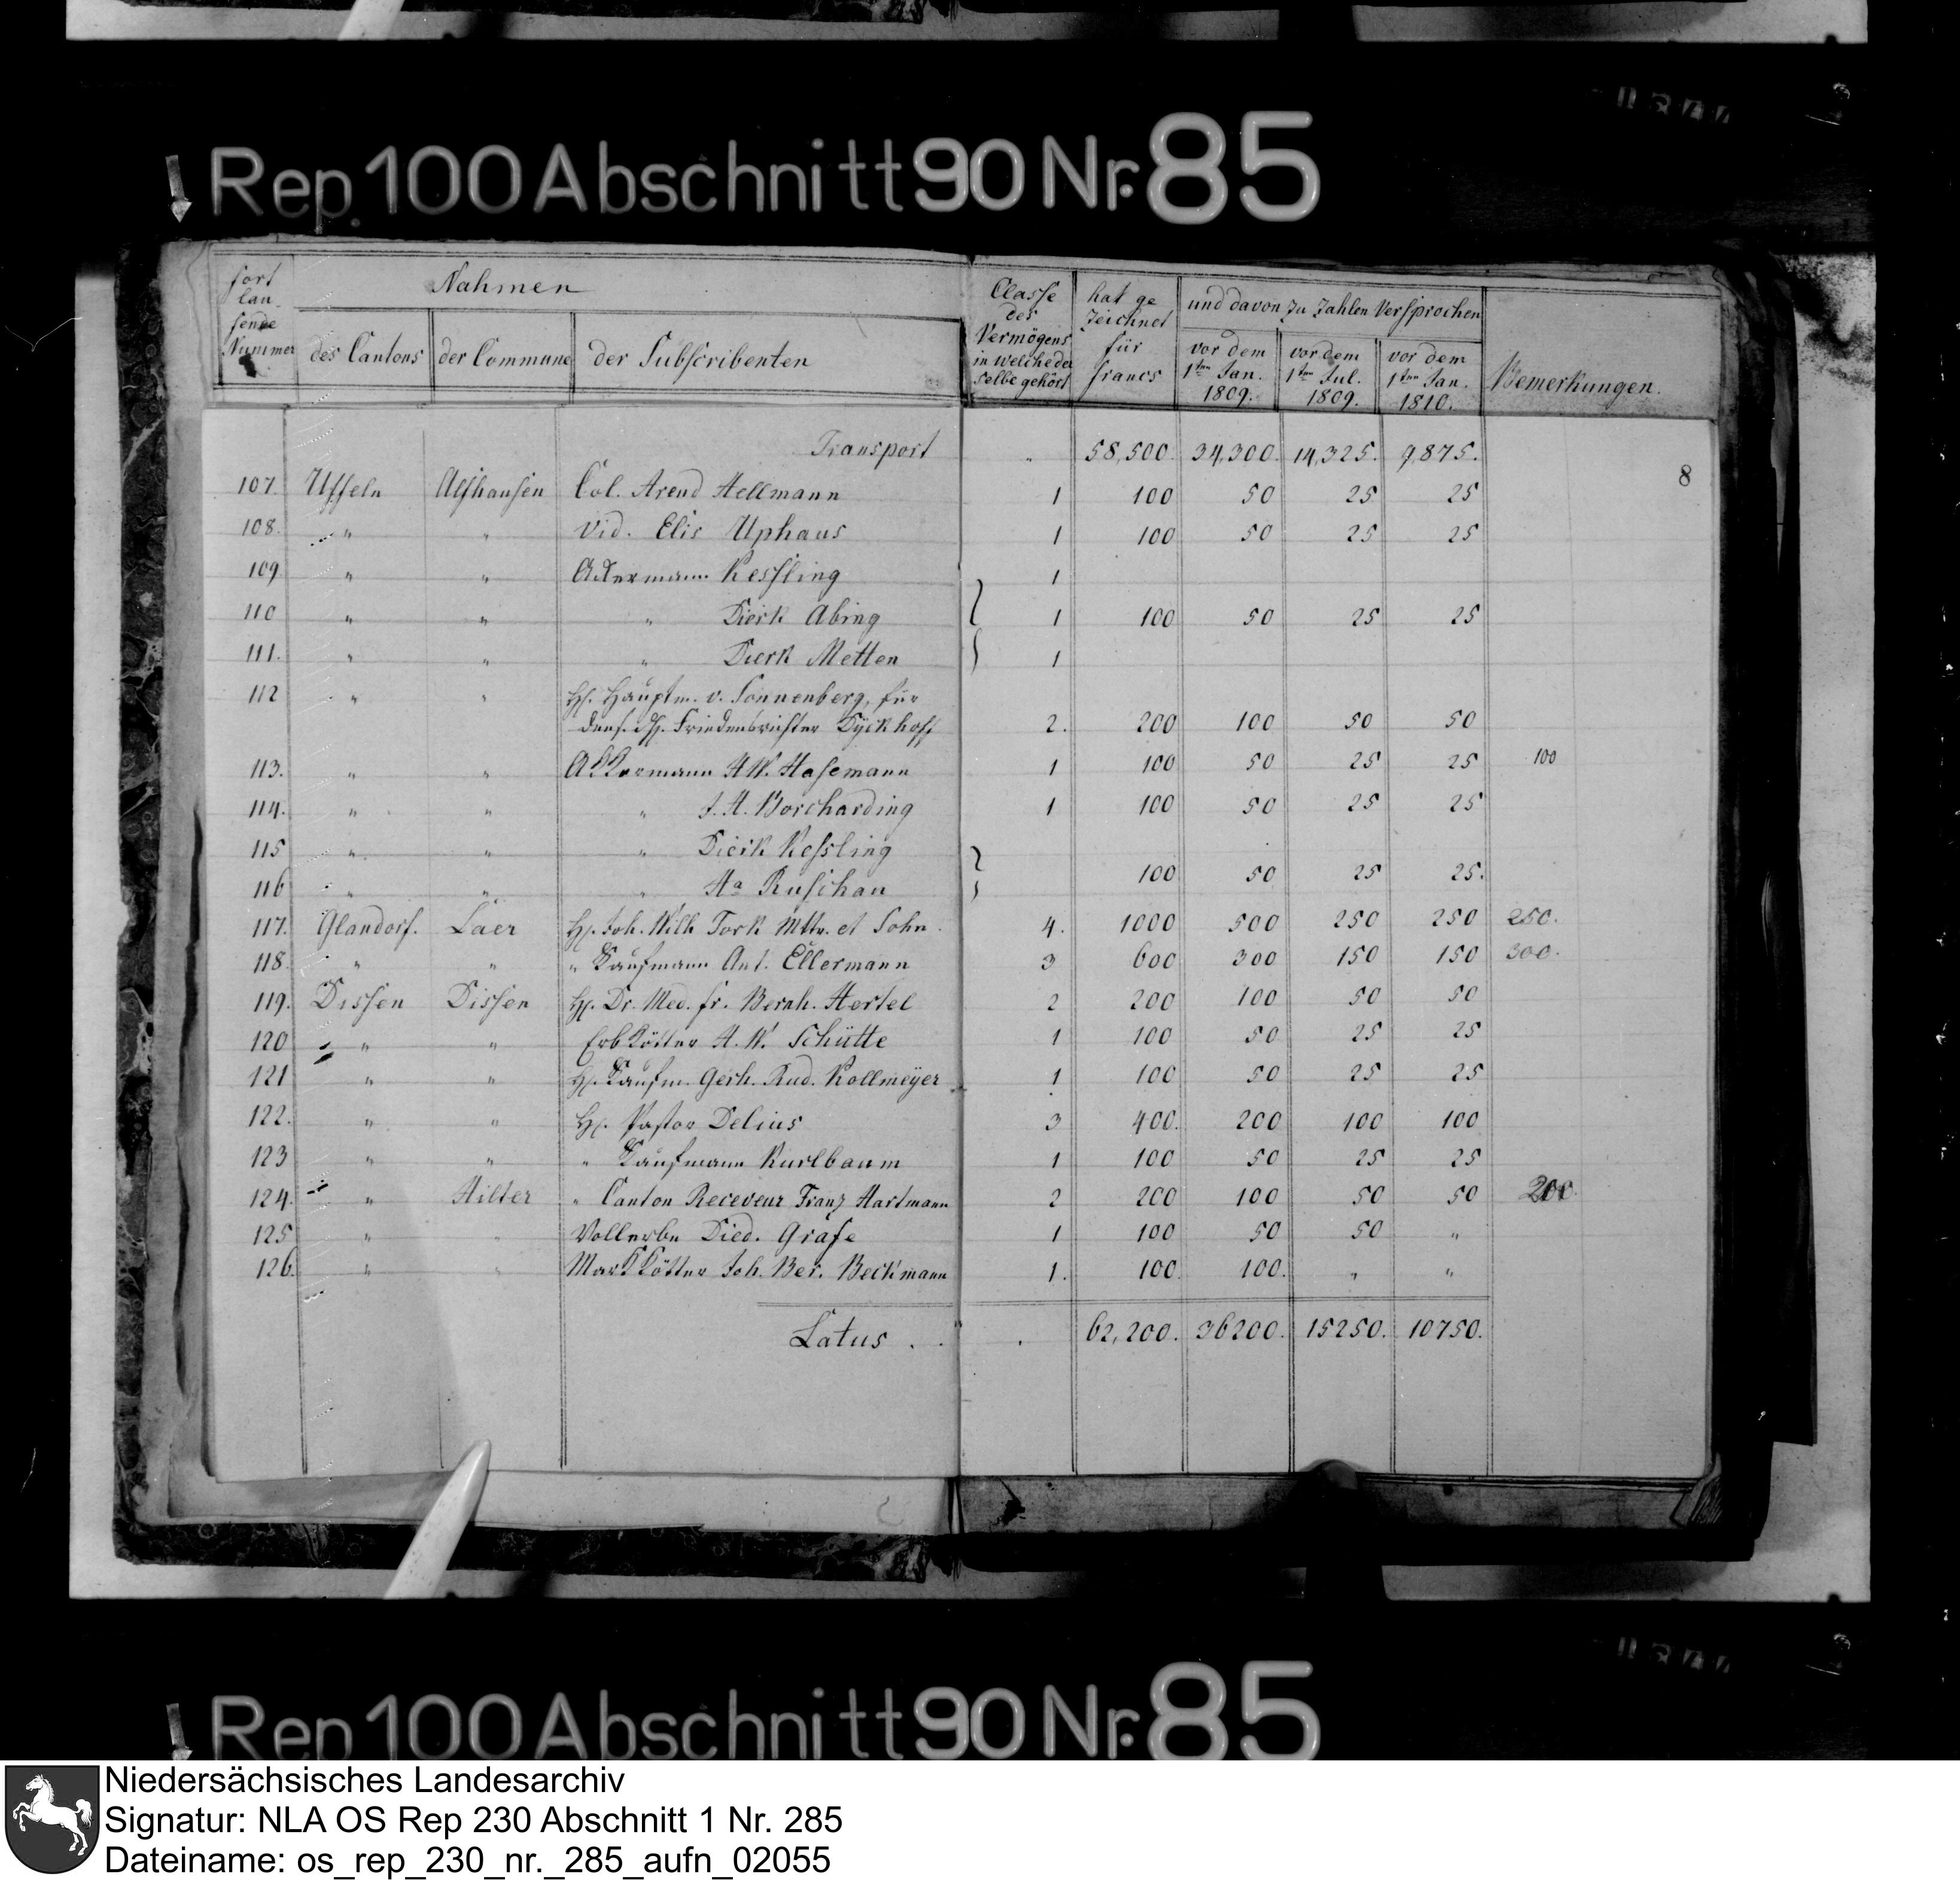 Rep. 100 Abschnitt 90 Nr. 85
fort lau- fende Nummer
Nahmen
des Cantons
der Commune
der Subscribenten
Classe des Vermögens in welche der selbe gehört
hat ge zeichnet für francs
und davon zu zahlen versprochen
vor dem 1ten Jan. 1809.
vor dem 1ten Jul. 1809.
vor dem 1ten Jan. 1810.
Bemerkungen.
8
Transport " 58,500. 34,300. 14,325. 9,875.
107 Uffeln Alfhausen Col. Arend Hellmann 1 100 50 25 25
108. " " Vid. Elis Uphaus 1 100 50 25 25
109 " " Ackermann Kessling 1
110 " " " Dierk Abing 1 100 50 25 25
111. " " " Dierk Metten 1
112 " " H. Hauptm. v. Sonnenberg, für
Friedensrichter Dyckhoff 2. 200 100 50 50
113. " " Akkermann HW. Hasemann 1 100 50 25 25 100
114. " " " J. H. Borcharding 1 100 50 25 25
115 " " " Dierk Kessling
116 " " " Ha Ruschau 100 50 25 25.
117. Glandorf. Laer H. Joh. Wilh Tork et Sohn. 4. 1000 500 250 250 250.
118. " " " Kaufmann Ant. Ellermann 3 600 300 150 150 300.
119. Dissen Dissen H. Dr. Med. fr. Bernh. Hertel 2 200 100 50 50
120 " " Erbkötter H. W. Schütte 1 100 50 25 25
121 " " H. Kaufm. Gerh. Rud. Kollmeÿer 1 100 50 25 25
122. " " H. Pastor Delius 3 400. 200 100 100
123 " " " Kaufmann Kurlbaum 1 100 50 25 25
124. " Hilter " Canton Receveur Franz Hartmann 2 200 100 50 50 200.
125 " " Vollerbe Died. Gräfe 1 100 50 50 "
126. " " Markkötter Joh. Ber. Beckmann 1. 100. 100. " "
Latus . . . 62,200. 36200. 15250. 10750.
Rep 100 Abschnitt 90 Nr. 85
Niedersächsisches Landesarchiv
Signatur: NLA OS Rep 230 Abschnitt 1 Nr. 285
Dateiname: os_rep_230_nr._285_aufn_02055